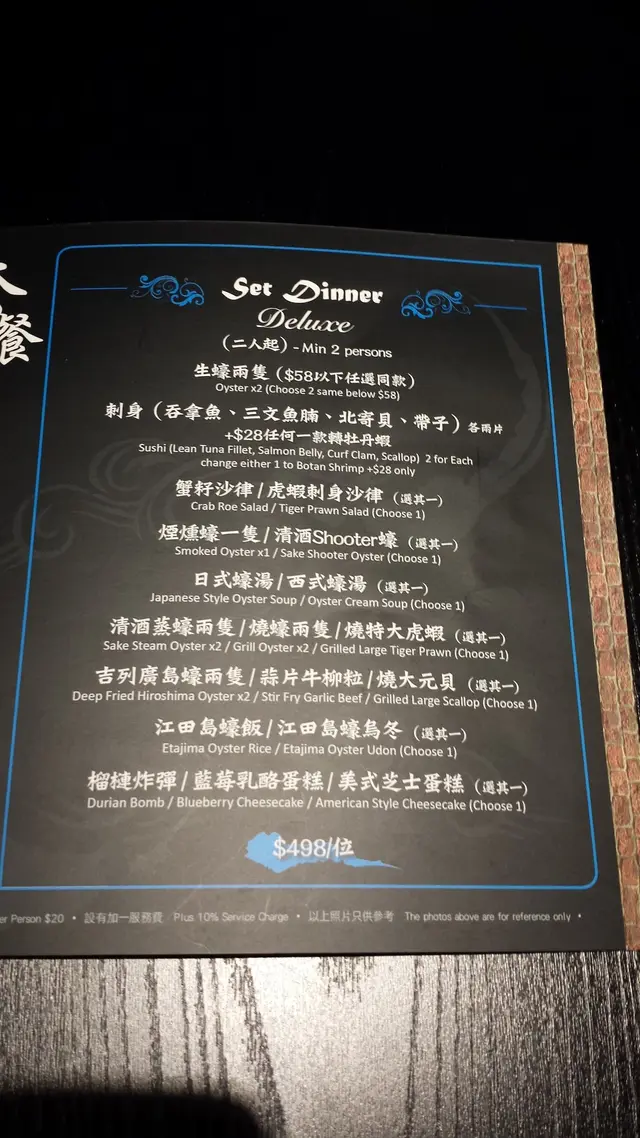 餐
Set Dinner
Deluxe
(二人起) - Min 2 persons
生蠔兩隻 ($58以下任選同款)
Oyster x2 (Choose 2 same below $58)
刺身 (吞拿魚、三文魚腩、北寄貝、帶子) 各兩片
+$28任何一款轉牡丹蝦
Sushi (Lean Tuna Fillet, Salmon Belly, Curf Clam, Scallop) 2 for Each
change either 1 to Botan Shrimp +$28 only
蟹籽沙律 / 虎蝦刺身沙律 (選其一)
Crab Roe Salad / Tiger Prawn Salad (Choose 1)
煙燻蠔一隻 / 清酒Shooter蠔 (選其一)
Smoked Oyster x1 / Sake Shooter Oyster (Choose 1)
日式蠔湯 / 西式蠔湯 (選其一)
Japanese Style Oyster Soup / Oyster Cream Soup (Choose 1)
清酒蒸蠔兩隻 / 燒蠔兩隻 / 燒特大虎蝦 (選其一)
Sake Steam Oyster x2 / Grill Oyster x2 / Grilled Large Tiger Prawn (Choose 1)
吉列廣島蠔兩隻 / 蒜片牛柳粒 / 燒大元貝 (選其一)
Deep Fried Hiroshima Oyster x2 / Stir Fry Garlic Beef / Grilled Large Scallop (Choose 1)
江田島蠔飯 / 江田島蠔烏冬 (選其一)
Etajima Oyster Rice / Etajima Oyster Udon (Choose 1)
榴槤炸彈 / 藍莓乳酪蛋糕 / 美式芝士蛋糕 (選其一)
Durian Bomb / Blueberry Cheesecake / American Style Cheesecake (Choose 1)
$498/位
er Person $20 • 設有加一服務費 Plus 10% Service Charge • 以上照片只供參考 The photos above are for reference only •